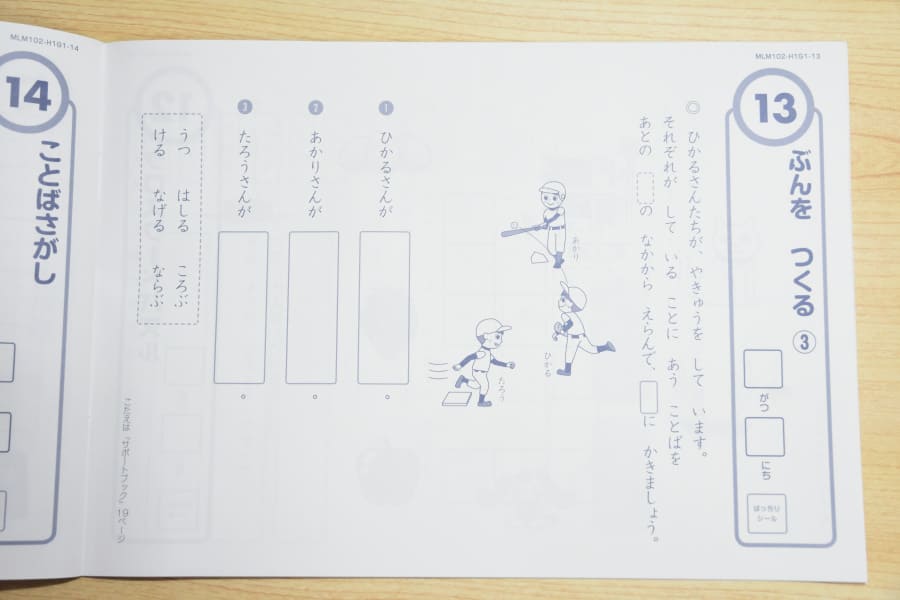 MLM102-H1G1-13
13
ぶんを つくる③
がつ
にち
ばっちり
シール
◎ ひかるさんたちが、やきゅうを して います。
それぞれが して いる ことに あう ことばを
あとの の なかから えらんで、 に かきましょう。
あかり
ひかる
たろう
1 ひかるさんが 。
2 あかりさんが 。
3 たろうさんが 。
うつ はしる ころぶ
ける なげる ならぶ
こたえは『サポートブック』19ページ
MLM102-H1G1-14
14
ことばさがし